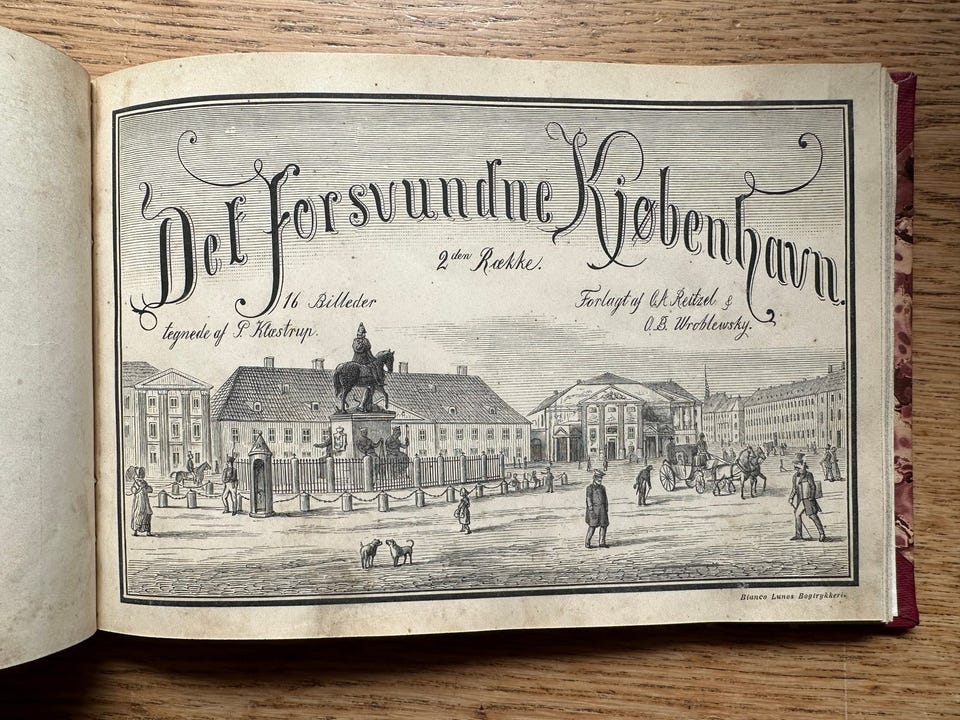 Det Forsvundne Kjøbenhavn.
2den Række.
16 Billeder
tegnede af P. Klæstrup.
Forlagt af C.A. Reitzel &
O.B. Wroblewsky.
Bianco Lunos Bogtrykkeri.